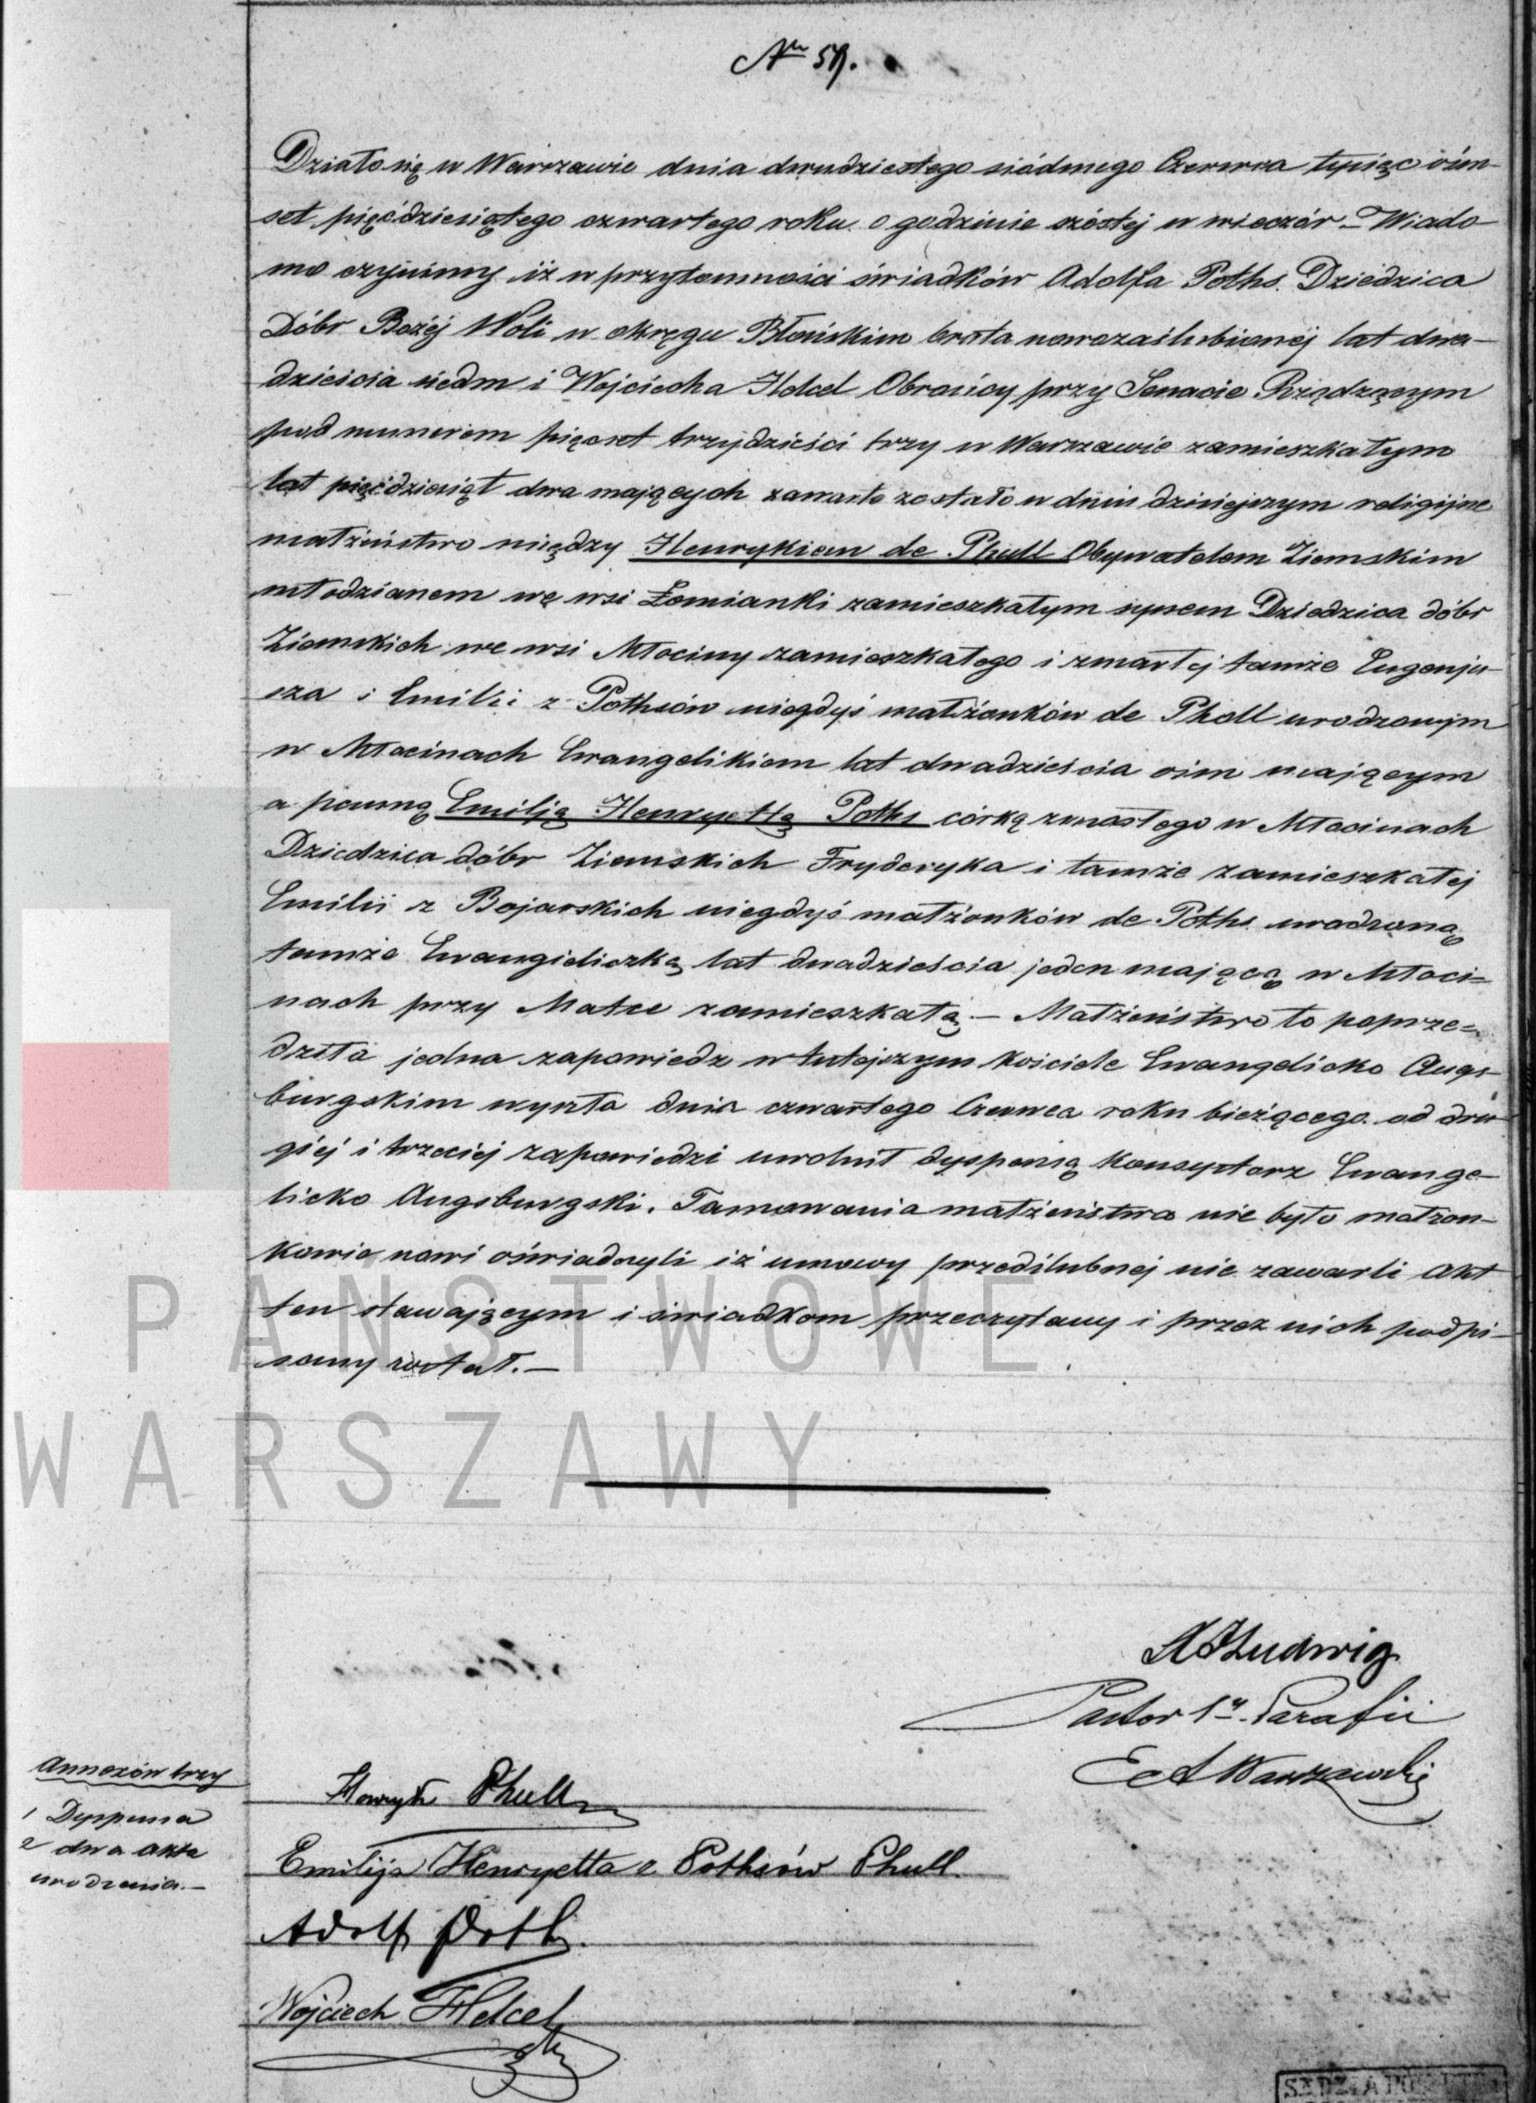 Nr 59.
Działo się w Warszawie dnia dwudziestego siódmego Czerwca tysiąc ośm-
set pięćdziesiątego czwartego roku o godzinie szóstej w wieczór – Wiado-
mo czyniemy iż w przytomności świadków Adolfa Poths Dziedzica
Dóbr Bożej Woli w okręgu Błońskim brata nowozaślubionej lat dwa-
dzieścia siedm i Wojciecha Helcel Obrońcy przy Senacie Rządzącym
pod numerem pięcset trzydzieści trzy w Warszawie zamieszkałym
lat pięćdziesiąt dwa mających zawarte zostało w dniu dzisiejszym religijne
małżeństwo między Henrykiem de Phull Obywatelem Ziemskim
młodzianem we wsi Łomianki zamieszkałym synem Dziedzica dóbr
Ziemskich we wsi Młociny zamieszkałego i zmarłej tamże Eugenju-
sza i Emilii z Pothsów niegdyś małżonków de Phull urodzonym
w Młocinach Ewangelikiem lat dwadzieścia ośm mającym
a panną Emilją Henryettą Poths córką zmarłego w Młocinach
Dziedzica dóbr Ziemskich Fryderyka i tamże zamieszkałej
Emilii z Bojarskich niegdyś małżonków de Poths urodzoną
tamże Ewangieliczką lat dwadzieścia jeden mającą w Młoci-
nach przy Matce zamieszkałą. – Małżeństwo to poprze-
dziła jedna zapowiedz w tutejszym kościele Ewangelicko Augs-
burgskim wyszła dnia czwartego Czerwca roku bieżącego od dru-
giej i trzeciej zapowiedzi uwolnił dyspensą Konsystorz Ewange-
licko Augsburgski. Tamowania małżeństwa nie było małżon-
kowie nowi oświadczyli iż umowy przedślubnej nie zawarli Akt
ten stawającym i świadkom przeczytany i przez nich podpi-
sany został. –
PAŃSTWOWE
WARSZAWY
Ludwig
Pastor 1y Parafii
E A Warszawskiej
Annexów trzy
1 Dyspensa
2 dwa akta
urodzenia. –
Henryk Phull
Emilija Henryetta z Pothsów Phull.
Adolf Poths.
Wojciech Helcel